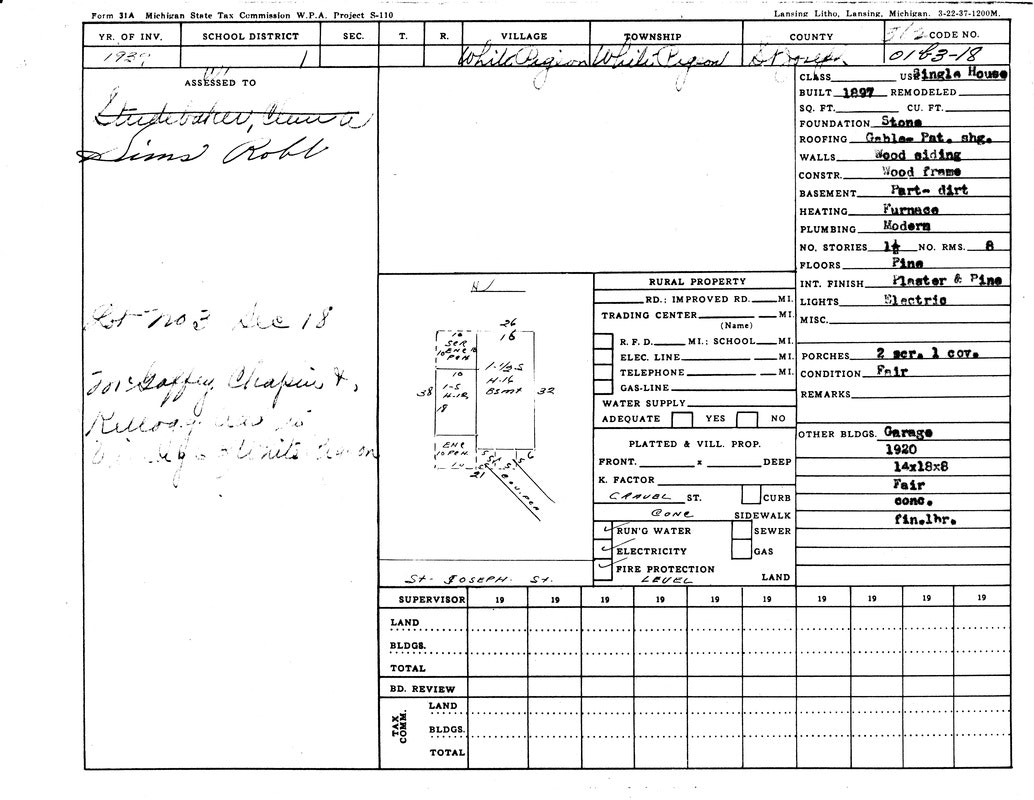 Form 31A Michigan State Tax Commission W.P.A. Project S-110
Lansing Litho, Lansing, Michigan. 3-22-37-1200M.
YR. OF INV. SCHOOL DISTRICT SEC. T. R. VILLAGE TOWNSHIP COUNTY CODE NO.
193 1 White Pigeon White Pigeon St Joseph 0183-18
ASSESSED TO
Studebaker, Clara
Sims Robb
Lot No 3 Sec 18
McGaffey, Chapin &
Kellogg
White Pigeon
CLASS US Single House
BUILT 1897 REMODELED
SQ. FT. CU. FT.
FOUNDATION Stone
ROOFING Gable- Pat. shg.
WALLS Wood siding
CONSTR. Wood frame
BASEMENT Part- dirt
HEATING Furnace
PLUMBING Modern
NO. STORIES 1½ NO. RMS. 8
FLOORS Pine
INT. FINISH Plaster & Pine
LIGHTS Electric
MISC.
PORCHES 2 scr. 1 cov.
CONDITION Fair
REMARKS
OTHER BLDGS. Garage
1920
14x18x8
Fair
conc.
fin.lbr.
N
26
16
10
SCR
10 ENC 10
PCH
1-1/2-S
H-16
Bsmt
10
1-S
H-12
18
38
32
ENC
10 PCH
21
5 6
St- JOSEPH- St.
RURAL PROPERTY
RD.; IMPROVED RD. MI.
TRADING CENTER MI.
(Name)
R. F. D. MI.; SCHOOL MI.
ELEC. LINE MI.
TELEPHONE MI.
GAS-LINE MI.
WATER SUPPLY
ADEQUATE YES NO
PLATTED & VILL. PROP.
FRONT. x DEEP
K. FACTOR
GRAVEL ST. CURB
CONC SIDEWALK
RUN'G WATER SEWER
ELECTRICITY GAS
FIRE PROTECTION
LEVEL LAND
SUPERVISOR 19 19 19 19 19 19 19 19 19 19
LAND
BLDGS.
TOTAL
BD. REVIEW
TAX COMM.
LAND
BLDGS.
TOTAL